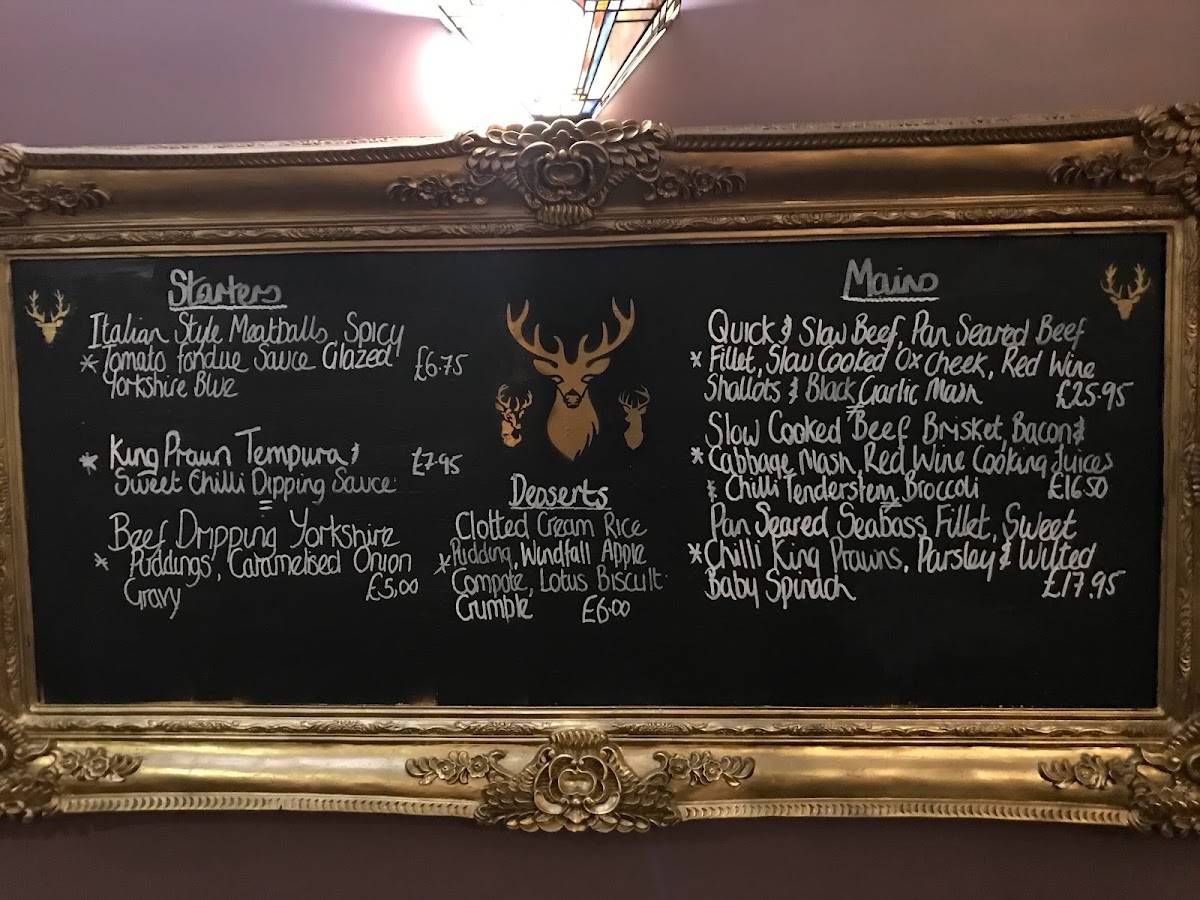 Starters
Italian Style Meatballs, Spicy
* Tomato fondue Sauce Glazed £6.75
Yorkshire Blue
* King Prawn Tempura & £7.95
Sweet Chilli Dipping Sauce
Beef Dripping Yorkshire
* Puddings, Caramelised Onion
Gravy £5,00
Desserts
Clotted Cream Rice
* Pudding, Windfall Apple
Compote, Lotus Biscuit
Crumble £6.00
Mains
Quick & Slow Beef, Pan Seared Beef
* Fillet, Slow Cooked Ox Cheek, Red Wine
Shallots & Black Garlic Mash £25.95
Slow Cooked Beef Brisket, Bacon &
* Cabbage Mash, Red Wine Cooking Juices
& Chilli Tenderstem Broccoli £16.50
Pan Seared Seabass Fillet, Sweet
* Chilli King Prawns, Parsley & Wilted
Baby Spinach £17.95